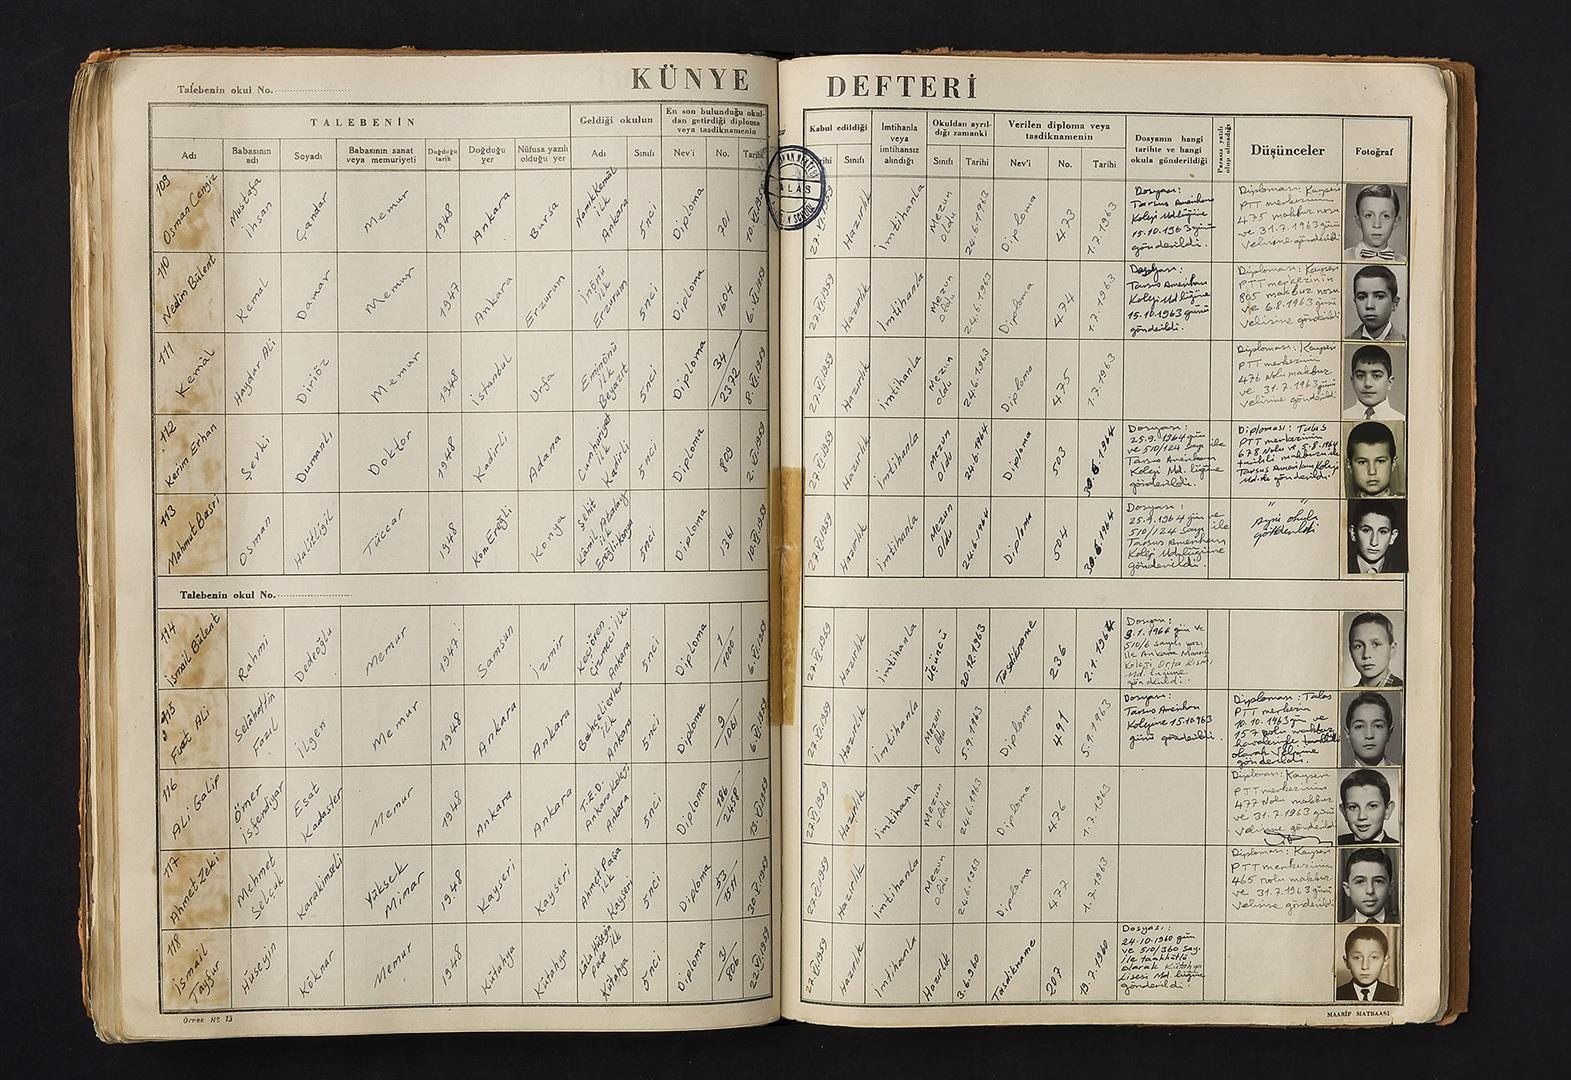 KÜNYE DEFTERİ
Talebenin okul No.
TALEBENİN
Geldiği okulun
En son bulunduğu okul-
dan getirdiği diploma
veya tasdiknamenin
Adı
Babasının
adı
Soyadı
Babasının sanat
veya memuriyeti
Doğduğu
tarih
Doğduğu
yer
Nüfusa yazılı
olduğu yer
Adı
Sınıfı
Nev'i
No.
Tarihi
Kabul edildiği
Sınıfı
İmtihanla
veya
imtihansız
alındığı
Okuldan ayrıl-
dığı zamanki
Sınıfı
Tarihi
Verilen diploma veya
tasdiknamenin
Nev'i
No.
Tarihi
Dosyanın hangi
tarihte ve hangi
okula gönderildiği
Parasız yatılı
olup olmadığı
Düşünceler
Fotoğraf
109
Osman Cengiz
Mustafa
İhsan
Çandar
Memur
1948
Ankara
Bursa
Namık Kemal
ilk
Ankara
5nci
Diploma
701
27.VI.1959
Hazırlık
İmtihanla
Mezun
oldu
24.6.1963
Diploma
473
1.7.1963
Dosyası:
Tarsus Amerikan
Koleji Md.lüğüne
15.10.1963 günü
gönderildi.
Diploması: Kayseri
PTT merkezinin
475 makbuz nosu
ve 31.7.1963 günü
velisine gönderildi
110
Nedim Bülent
Kemal
Damar
Memur
1947
Ankara
Erzurum
İnönü
ilk
Erzurum
5nci
Diploma
1604
6.VI.1959
27.VI.1959
Hazırlık
İmtihanla
Mezun
oldu
24.6.1963
Diploma
474
1.7.1963
Dosyası:
Tarsus Amerikan
Koleji Md.lüğüne
15.10.1963 günü
gönderildi.
Diploması: Kayseri
PTT merkezinin
805 makbuz nosu
ve 6.8.1963 günü
velisine gönderildi
111
Kemâl
Haydar Ali
Diriöz
Memur
1948
İstanbul
Urfa
Eminönü
ilk
Beyazıt
5nci
Diploma
34
2372
8.VI.1959
27.VI.1959
Hazırlık
İmtihanla
Mezun
oldu
24.6.1963
Diploma
475
1.7.1963
Diploması: Kayseri
PTT merkezinin
476 nolu makbuz
ve 31.7.1963 günü
velisine gönderildi
112
Kerim Erhan
Şevki
Dumanlı
Doktor
1948
Kadirli
Adana
Cumhuriyet
ilk
Kadirli
5nci
Diploma
809
2.VI.1959
27.VI.1959
Hazırlık
İmtihanla
Mezun
oldu
24.6.1964
Diploma
503
30.6.1964
Dosyası:
25.9.1964 gün ve
510/124 sayı ile
Tarsus Amerikan
Koleji Md.lüğüne
gönderildi.
Diploması: Talas
PTT merkezinin
678 Nolu ve 5.8.1964
tarihli makbuzu ile
Tarsus Amerikan Koleji
Md.ne gönderildi.
113
Mahmut Basri
Osman
Halitligil
Tüccar
1948
Kon. Ereğli
Konya
Şehit
Kâmil Atalay
Ereğli-Konya
5nci
Diploma
1361
10.VI.1959
27.VI.1959
Hazırlık
İmtihanla
Mezun
oldu
24.6.1964
Diploma
504
30.6.1964
Dosyası:
25.9.1964 gün ve
510/124 sayı ile
Tarsus Amerikan
Koleji Md.lüğüne
gönderildi.
" "
Aynı okula
gönderildi
Talebenin okul No.
114
İsmail Bülent
Rahmi
Dedeoğlu
Memur
1947
Samsun
İzmir
Keçiören
Çizmeci ilk.
Ankara
5nci
Diploma
1
1000
6.VI.1959
27.VI.1959
Hazırlık
İmtihanla
Üçüncü
20.12.1963
Tasdikname
236
2.1.1964
Dosyası:
9.1.1964 gün ve
510/6 sayılı yazı
ile Ankara Maarif
Koleji Orta Kısm.
Md.lüğüne
gönderildi.
115
Fuat Ali
Selâhattin
Fazıl
İlgen
Memur
1948
Ankara
Ankara
Bahçelievler
ilk
Ankara
5nci
Diploma
9
1061
6.VI.1959
27.VI.1959
Hazırlık
İmtihanla
Mezun
oldu
5.9.1963
Diploma
491
5.9.1963
Dosyası:
Tarsus Amerikan
Kolejine 15.10.963
günü gönderildi.
Diploması: Talas
PTT merkezin
10.10.1963 gün ve
157 nolu makbuz
olarak velisine
gönderildi.
116
Ali Galip
Ömer
İsfendiyar
Esat
Kadaster
Memur
1948
Ankara
Ankara
T.E.D.
Ankara Koleji
Ankara
5nci
Diploma
186
2458
13.VI.1959
27.VI.1959
Hazırlık
İmtihanla
Mezun
oldu
24.6.1963
Diploma
476
1.7.1963
Diploması: Kayseri
PTT merkezinin
477 Nolu makbuz
ve 31.7.1963 günü
velisine gönderildi
117
Ahmet Zeki
Mehmet
Selçuk
Karakimseli
Yüksek
Mimar
1948
Kayseri
Kayseri
Ahmet Paşa
ilk
Kayseri
5nci
Diploma
53
1511
30.VI.1959
27.VI.1959
Hazırlık
İmtihanla
Mezun
oldu
24.6.1963
Diploma
477
1.7.1963
Diploması: Kayseri
PTT merkezinin
465 nolu makbuz
ve 31.7.1963 günü
velisine gönderildi
118
İsmail
Tayfur
Hüseyin
Köknar
Memur
1948
Kütahya
Kütahya
Lala Hüseyin
Paşa ilk
Kütahya
5nci
Diploma
31
806
22.VI.1959
27.VI.1959
Hazırlık
İmtihanla
Hazırlık
3.6.1960
Tasdikname
207
19.7.1960
Dosyası:
24.10.1960 gün
ve 510/360 sayı
ile taahhütlü
olarak Kütahya
Lisesi Md.lüğüne
gönderildi.
Örnek No 13
MAARİF MATBAASI